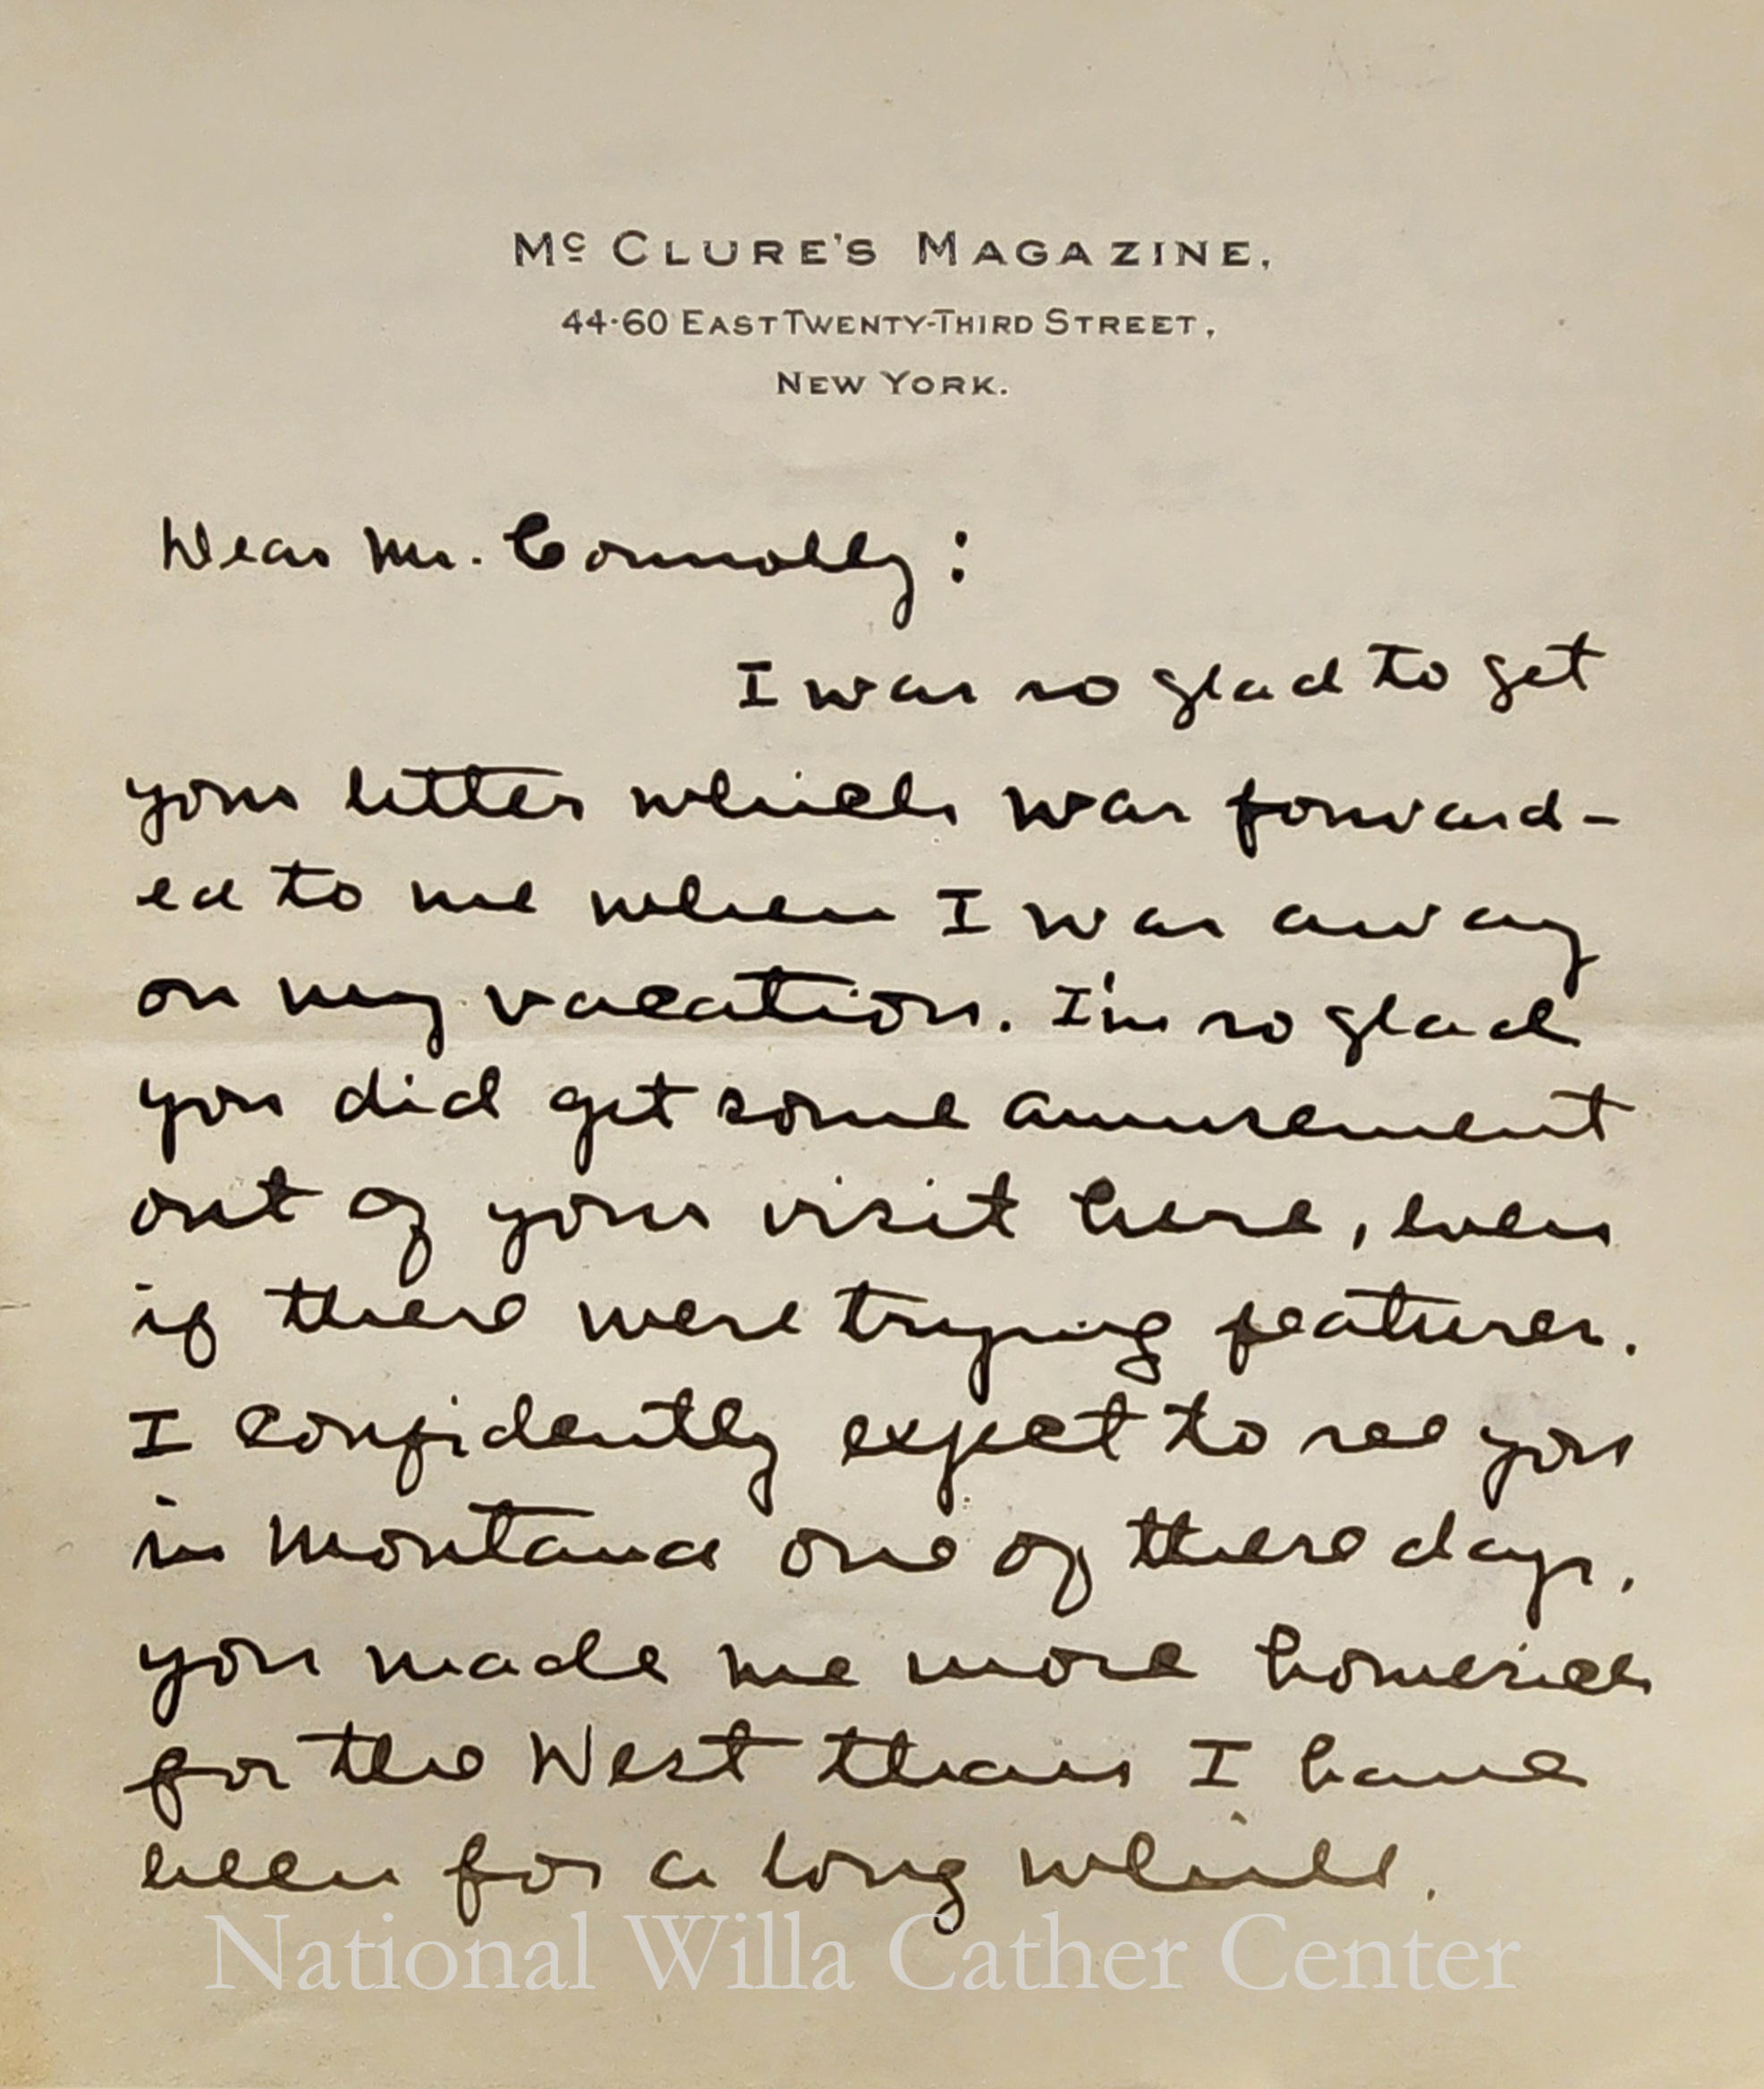 McCLURE'S MAGAZINE,
44-60 EAST TWENTY-THIRD STREET,
NEW YORK.
Dear Mr. Connolly:
I was so glad to get
your letter which was forward-
ed to me when I was away
on my vacation. I'm so glad
you did get some amusement
out of your visit here, even
if there were trying features.
I confidently expect to see you
in Montana one of these days,
you made me more homesick
for the West than I have
been for a long while.
National Willa Cather Center